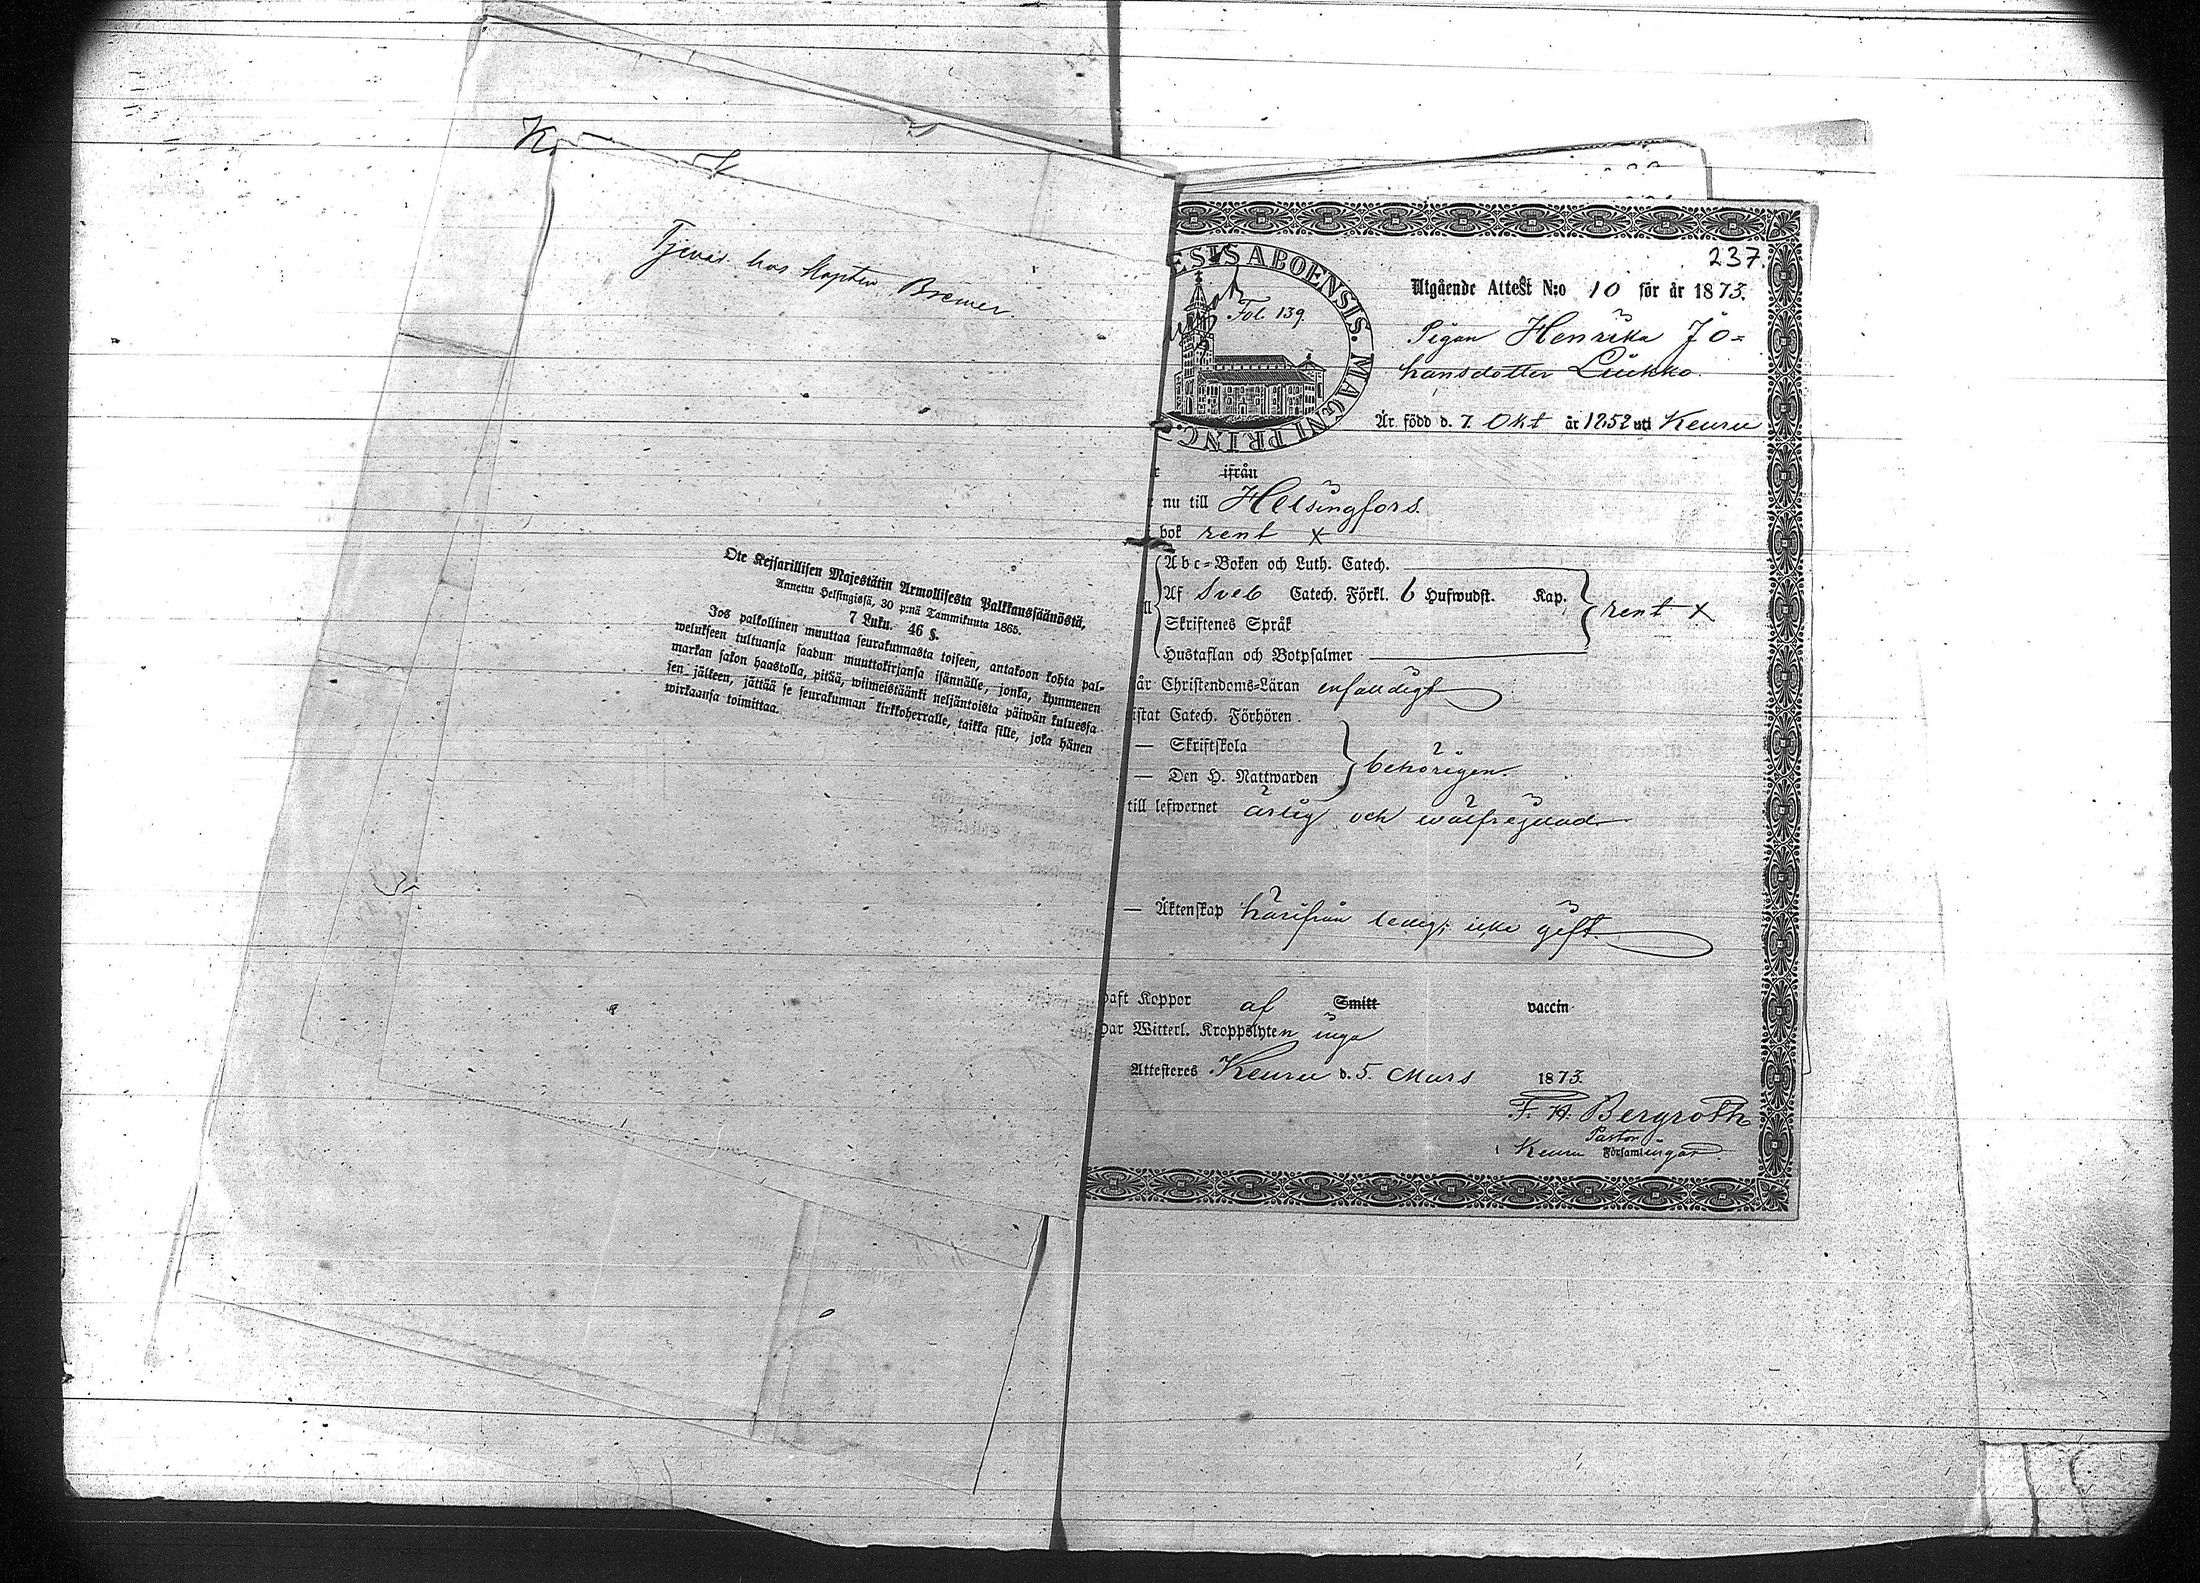 Tjenar hos Kapten Bremer.
Ote Keisarillisen Majestätin Armollisesta Palkkaussäännöstä,
Annettu Helsingissä, 30 p:nä Tammikuuta 1865.
7 Luku. 46 §.
Jos palkollinen muuttaa seurakunnasta toiseen, antakoon kohta pal-
welukseen tultuansa saadun muuttokirjansa isännälle, jonka, kymmenen
markan sakon haastolla, pitää, wiimeistäänki neljäntoista päiwän kuluessa
sen jälkeen, jättää se seurakunnan kirkkoherralle, taikka sille, joka hänen
wirkaansa toimittaa.
237.
ESIS ABOENSIS. MAGNI PRINC.
Fol. 139.
Utgående Attest N:o 10 för år 1873.
Pigan Henrika Jo-
hansdotter Liukko.
Är född d. 7. Okt år 1852 uti Keuru
ifrån
nu till Helsingfors.
bok rent x
Abc-Boken och Luth. Catech.
Af Sveb Catech. Förkl. 6 Hufwudst. Kap. rent x
Skriftenes Språk
Hustaflan och Botpsalmer
år Christendoms-Läran enfaldigt
istat Catech. Förhören
— Skriftskola
— Den H. Nattwarden behörigen.
till lefwernet ärlig och wälfrejdad
— Äktenskap härifrån ledig; icke gift.
haft Koppor af Smitt vaccin
har Witterl. Kroppslyten inga
Attesteras Keuru d. 5. Mars 1873.
F. H. Bergroth
Pastor
i Keuru Församlingar